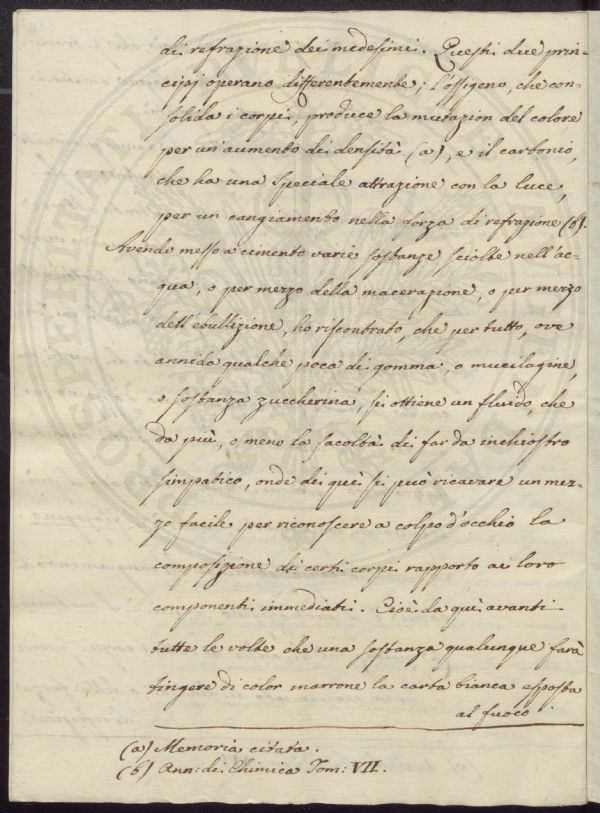 di refrazione dei medesimi. Questi due prin-
cipj operano differentemente; l'ossigeno, che con-
solida i corpi, produce la mutazion del colore
per un'aumento di densità (a), e il carbonio,
che ha una speciale attrazione con la luce,
per un cangiamento nella forza di refrazione (b).
Avendo messo a cimento varie sostanze sciolte nell'ac-
qua, o per mezzo della macerazione, o per mezzo
dell'ebullizione, ho riscontrato, che per tutto, ove
annida qualche poca di gomma, o mucilagine,
o sostanza zuccherina, si ottiene un fluido, che
da più, o meno la facoltà di far da inchiostro
simpatico, onde di quì si può ricavare un mez-
zo facile per riconoscere a colpo d'occhio la
composizione di certi corpi rapporto ai loro
componenti immediati. Cioè da quì avanti
tutte le volte che una sostanza qualunque farà
tingere di color marrone la carta bianca esposta
al fuoco
(a) Memoria citata.
(b) Ann: di Chimica Tom: VII.